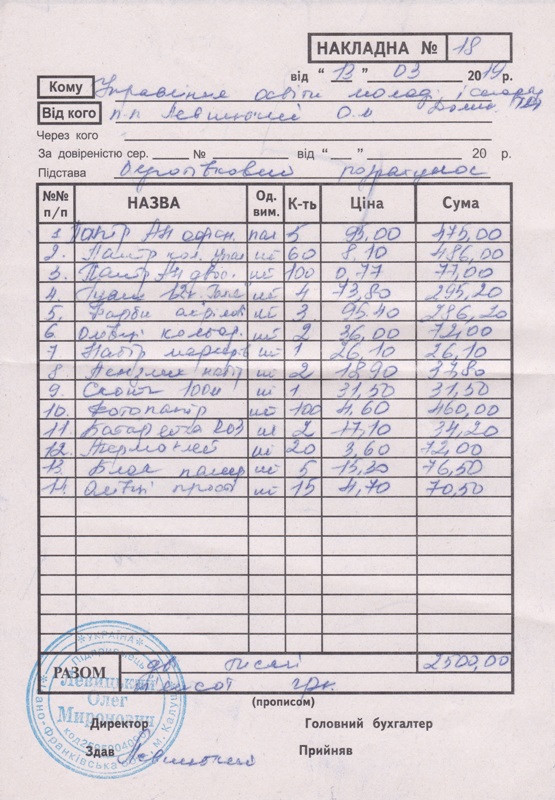 НАКЛАДНА № 18
від “ 13 ” 03 2019 р.
Кому Управління освіти молоді і
Від кого П.П Левицький О.М
Через кого
За довіреністю сер. № від “ ” 20 р.
Підстава розрахунок
№№ п/п НАЗВА Од. вим. К-ть Ціна Сума
1. Папір А4 пач 5 95,00 475,00
2. Папір кол. шт 60 8,10 486,00
3. Папір А4 шт 100 0,77 77,00
4 Гуаш 12к. шт 4 73,80 295,20
5. Фарби акрилові шт 3 95,40 286,20
6 Олівці кольор. шт 2 36,00 72,00
7 Набір маркерів шт 1 26,10 26,10
8 Пензлик набір шт 2 18,90 37,80
9. Скотч шт 1 31,50 31,50
10. Фотопапір шт 100 4,60 460,00
11. шт 2 17,10 34,20
12. Термоклей шт 20 3,60 72,00
13. Блок шт 5 15,30 76,50
14. Олівці прості шт 15 4,70 70,50
РАЗОМ дві тисячі 2500,00
п'ятсот грн.
(прописом)
Директор Головний бухгалтер
Здав Левицький Прийняв
УКРАЇНА
Підприємець
Левицький
Олег
Миронович
Івано-Франківська м. Калуш